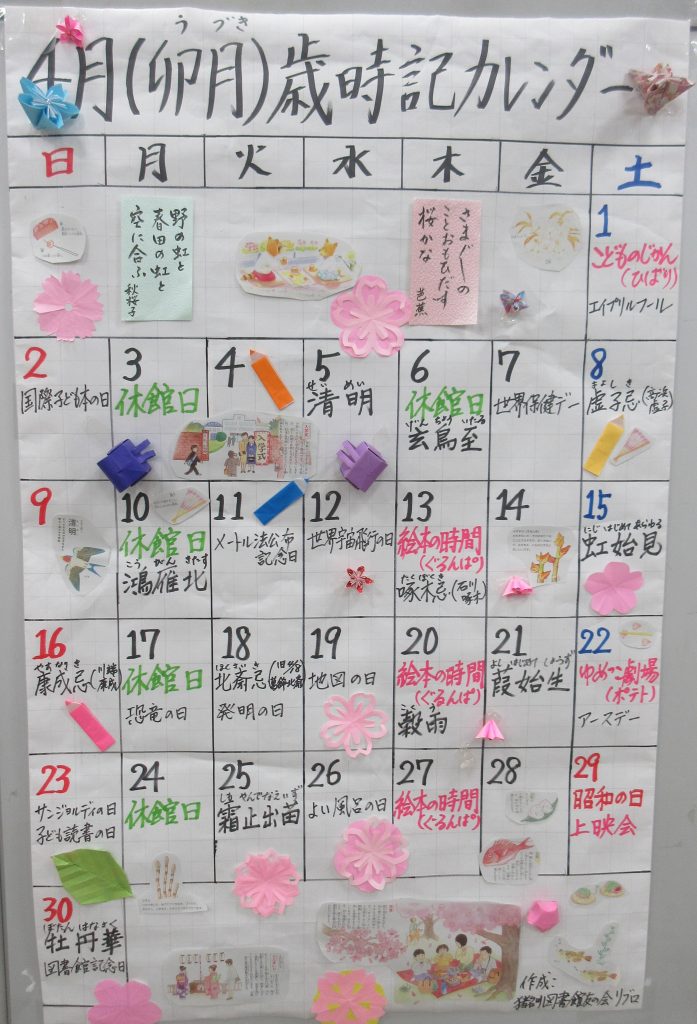 うづき
4月(卯月)歳時記カレンダー
日 月 火 水 木 金 土
野の虹と
春田の虹と
空に合ふ
秋桜子
さまざまの
ことおもひだす
桜かな
芭蕉
1
こどものじかん
(ひばり)
エイプリルフール
2
国際子ども本の日
3
休館日
4
5
せいめい
清明
6
休館日
げんちょういたる
玄鳥至
7
世界保健デー
8
きょしき
虚子忌(高浜虚子)
入学式
9
清明
10
休館日
こうがんきたす
鴻雁北
11
メートル法公布
記念日
12
世界宇宙飛行の日
13
絵本の時間
(ぐるんぱ)
たくぼくき
啄木忌(石川啄木)
14
15
にじはじめてあらわる
虹始見
16
やすなりき
康成忌(川端康成)
17
休館日
恐竜の日
18
ほくさいき
北斎忌(葛飾北斎)
発明の日
19
地図の日
20
絵本の時間
(ぐるんぱ)
こくう
穀雨
21
よしはじめてしょうず
葭始生
22
ゆめっこ劇場
(ポテト)
アースデー
23
サンジョルディの日
子ども読書の日
24
休館日
25
しもやんでなえいず
霜止出苗
26
よい風呂の日
27
絵本の時間
(ぐるんぱ)
28
29
昭和の日
上映会
30
ぼたんはなさく
牡丹華
図書館記念日
作成:
図書館友の会リブロ